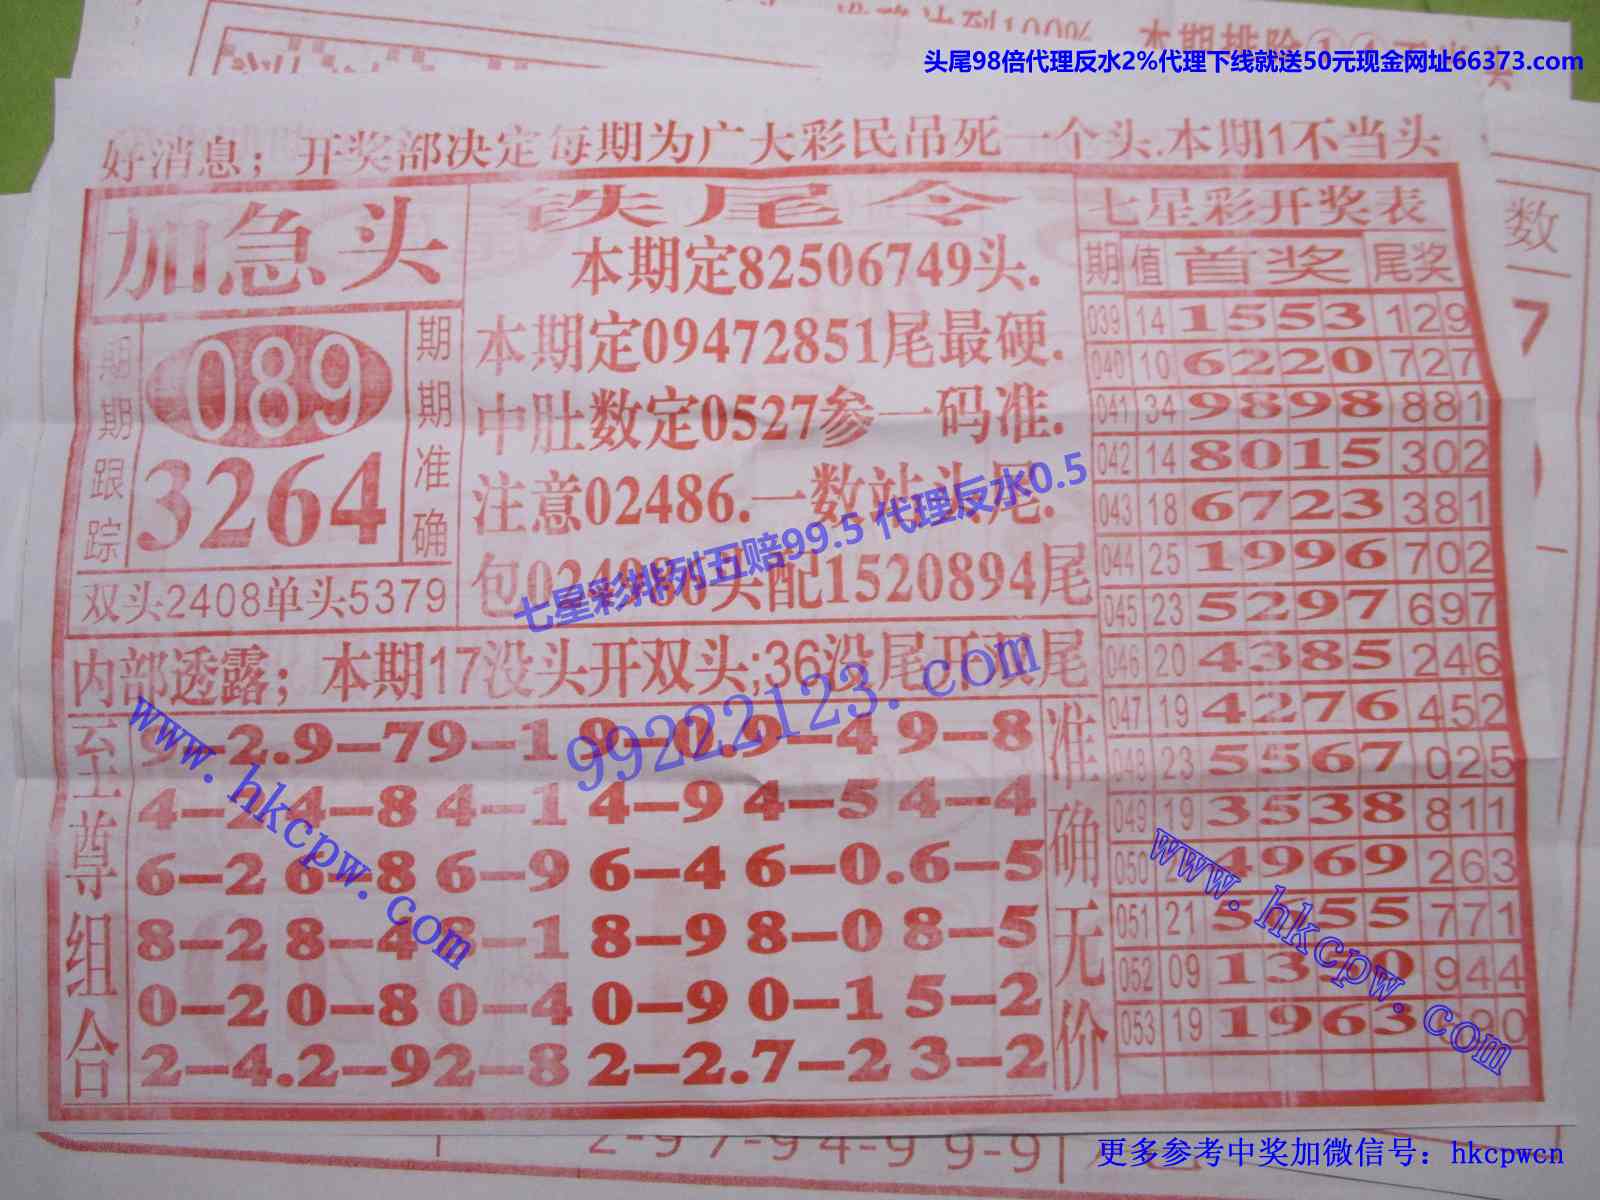 本期排除
头尾98倍代理反水2%代理下线就送50元现金网址66373.com
好消息；开奖部决定每期为广大彩民吊死一个头.本期1不当头
加急头
期期跟踪
089
3264
期期准确
双头2408单头5379
铁尾令
本期定82506749头.
本期定09472851尾最硬.
中肚数定0527参一码准.
注意02486.一数站头尾.
头配1520894尾
七星彩排列五赔99.5 代理反水0.5
内部透露；本期17没头开双头;36没尾开双尾
99222123.com
www.hkcpw.com
至尊组合
9-2.9-79-1 9-0.9-4 9-8
4-2 4-8 4-1 4-9 4-5 4-4
6-2 6-8 6-9 6-4 6-0.6-5
8-2 8-4 8-1 8-9 8-0 8-5
0-2 0-8 0-4 0-9 0-1 5-2
2-4.2-92-8 2-2.7-2 3-2
准确无价
七星彩开奖表
期 值 首奖 尾奖
039 14 1553 129
040 10 6220 727
041 34 9898 881
042 14 8015 302
043 18 6723 381
044 25 1996 702
045 23 5297 697
046 20 4385 246
047 19 4276 452
048 23 5567 025
049 19 3538 811
050 4969 263
051 21 5 55 771
052 09 13 0 944
053 19 1963 20
www.hkcpw.com
数
7
2-9 7-9 4-9 9-9
更多参考中奖加微信号：hkcpwcn